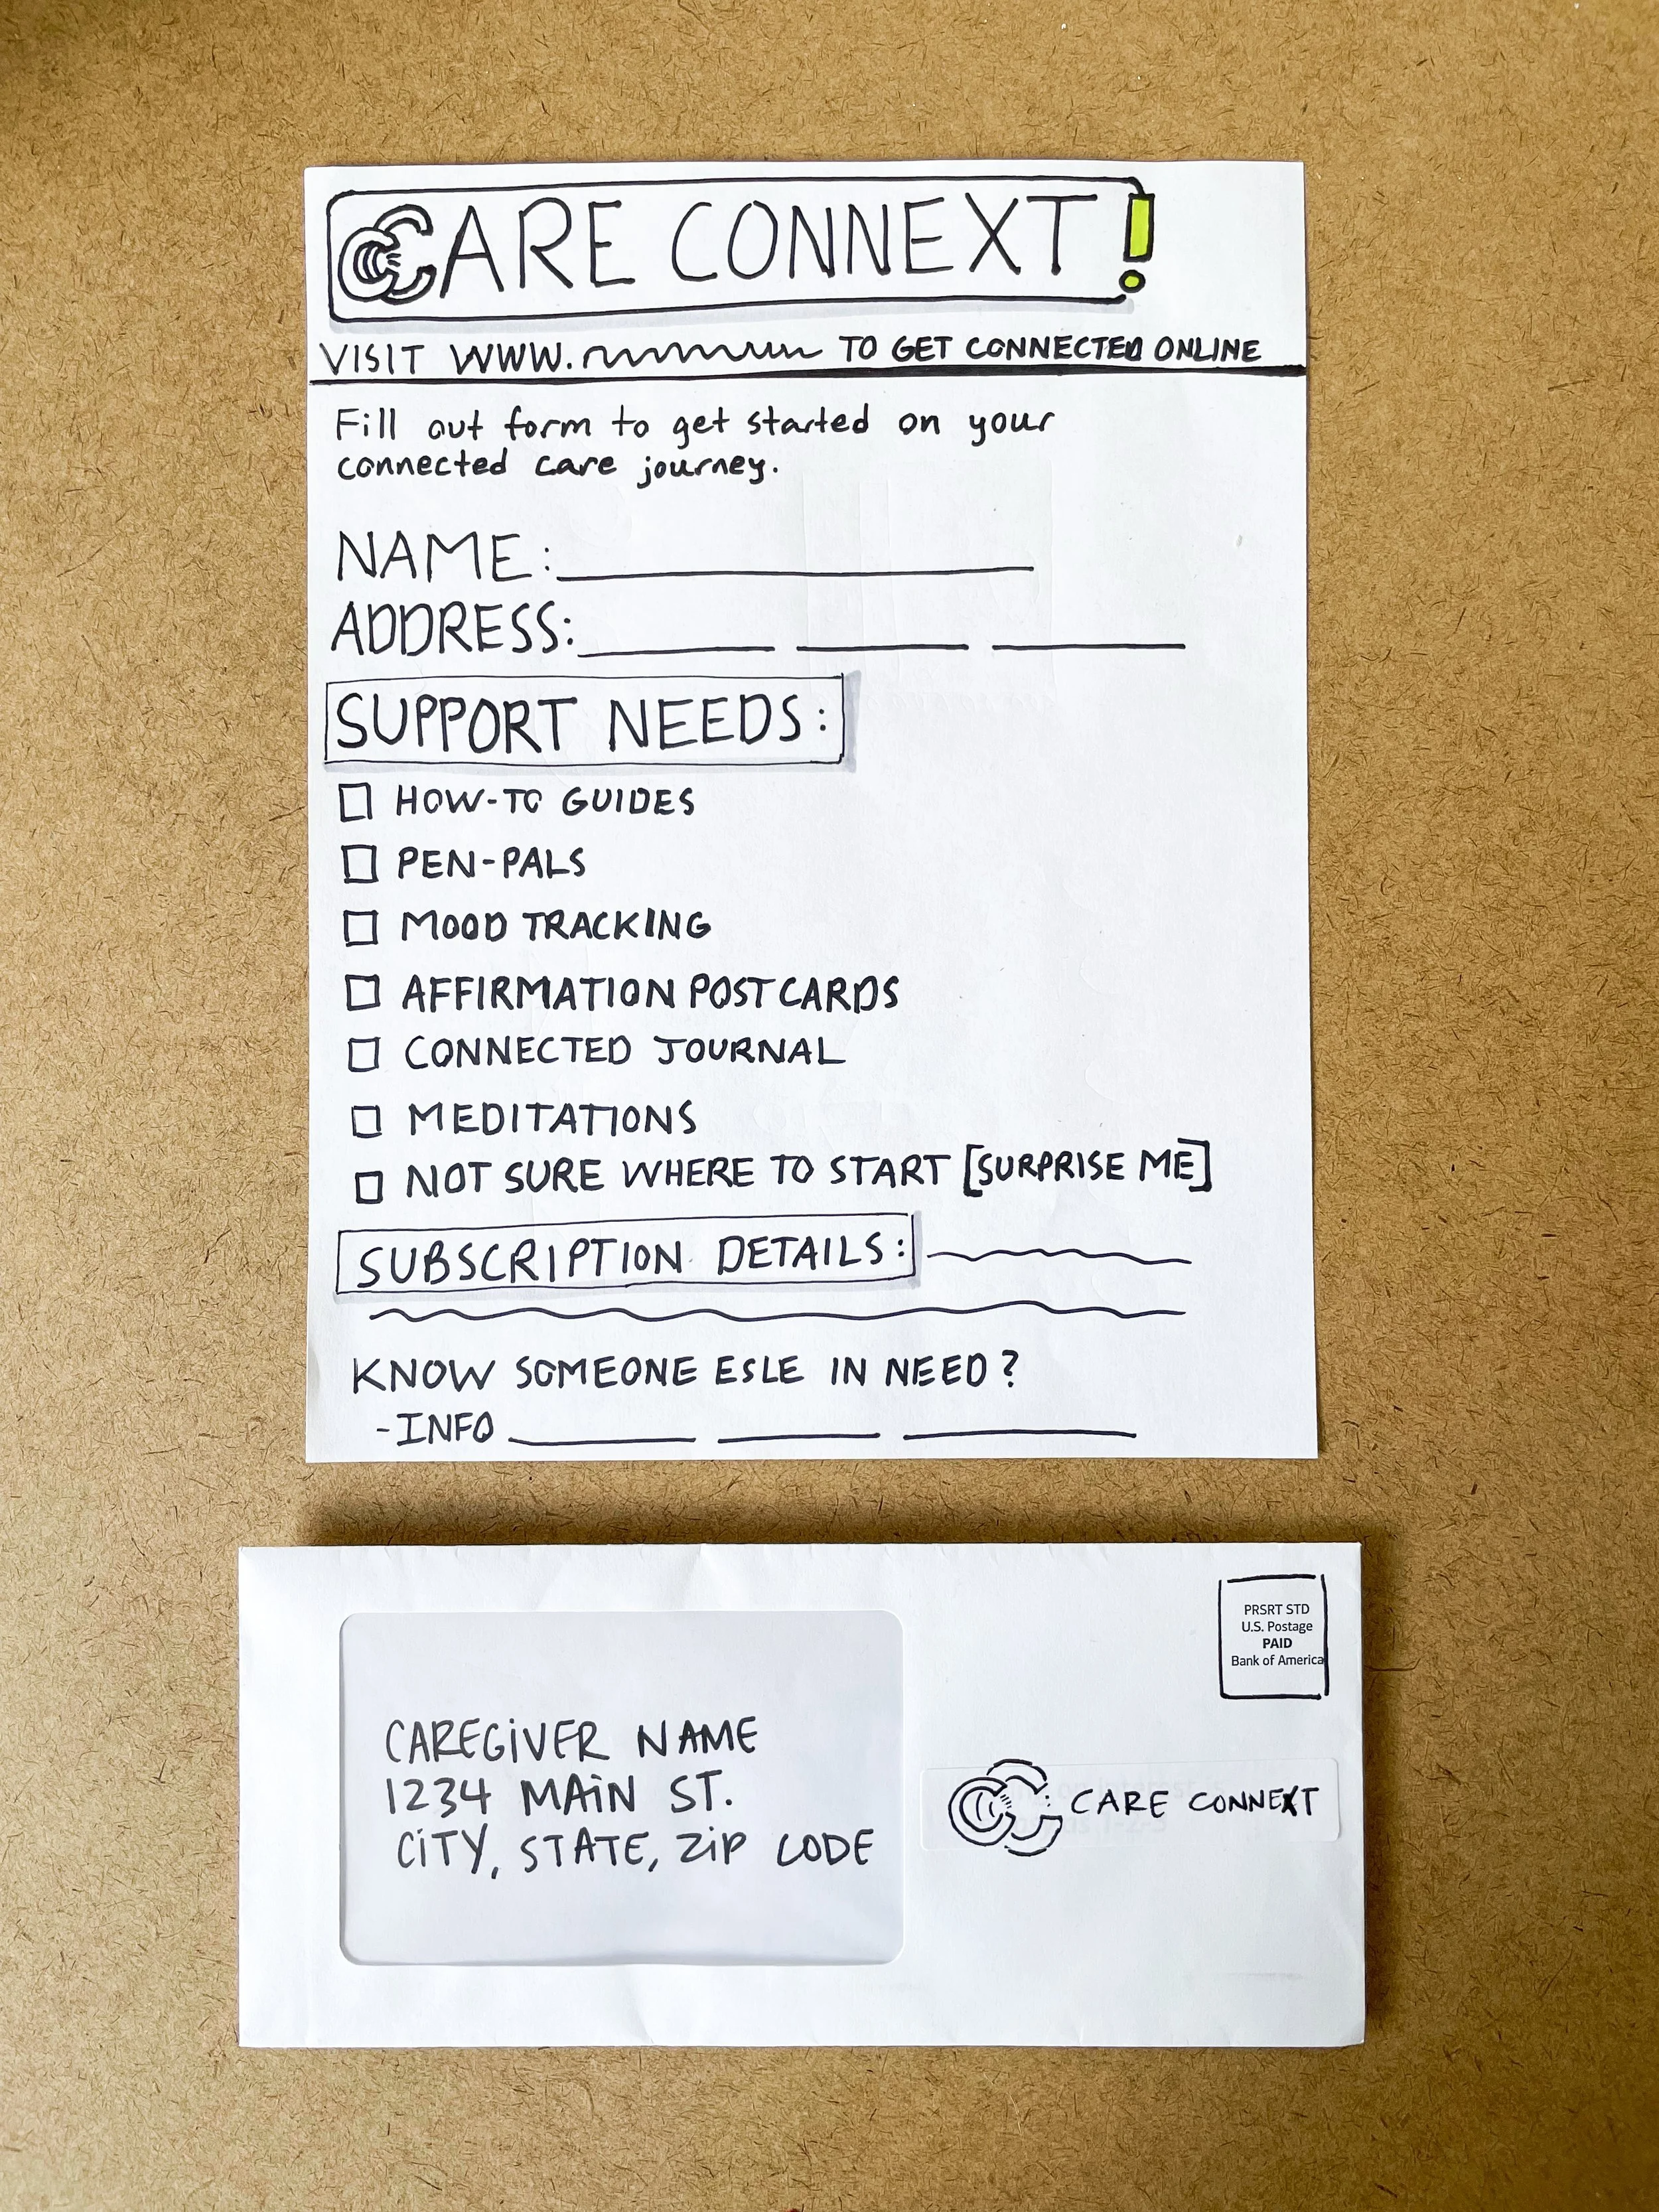 CARE CONNEXT!
VISIT WWW. TO GET CONNECTED ONLINE
Fill out form to get started on your
connected care journey.
NAME:
ADDRESS:
SUPPORT NEEDS:
HOW-TO GUIDES
PEN-PALS
MOOD TRACKING
AFFIRMATION POSTCARDS
CONNECTED JOURNAL
MEDITATIONS
NOT SURE WHERE TO START [SURPRISE ME]
SUBSCRIPTION DETAILS:
KNOW SOMEONE ESLE IN NEED?
-INFO
PRSRT STD
U.S. Postage
PAID
Bank of America
CAREGiVER NAME
1234 MAiN ST.
CiTY, STATE, ZiP CODE
CC CARE CONNEXT